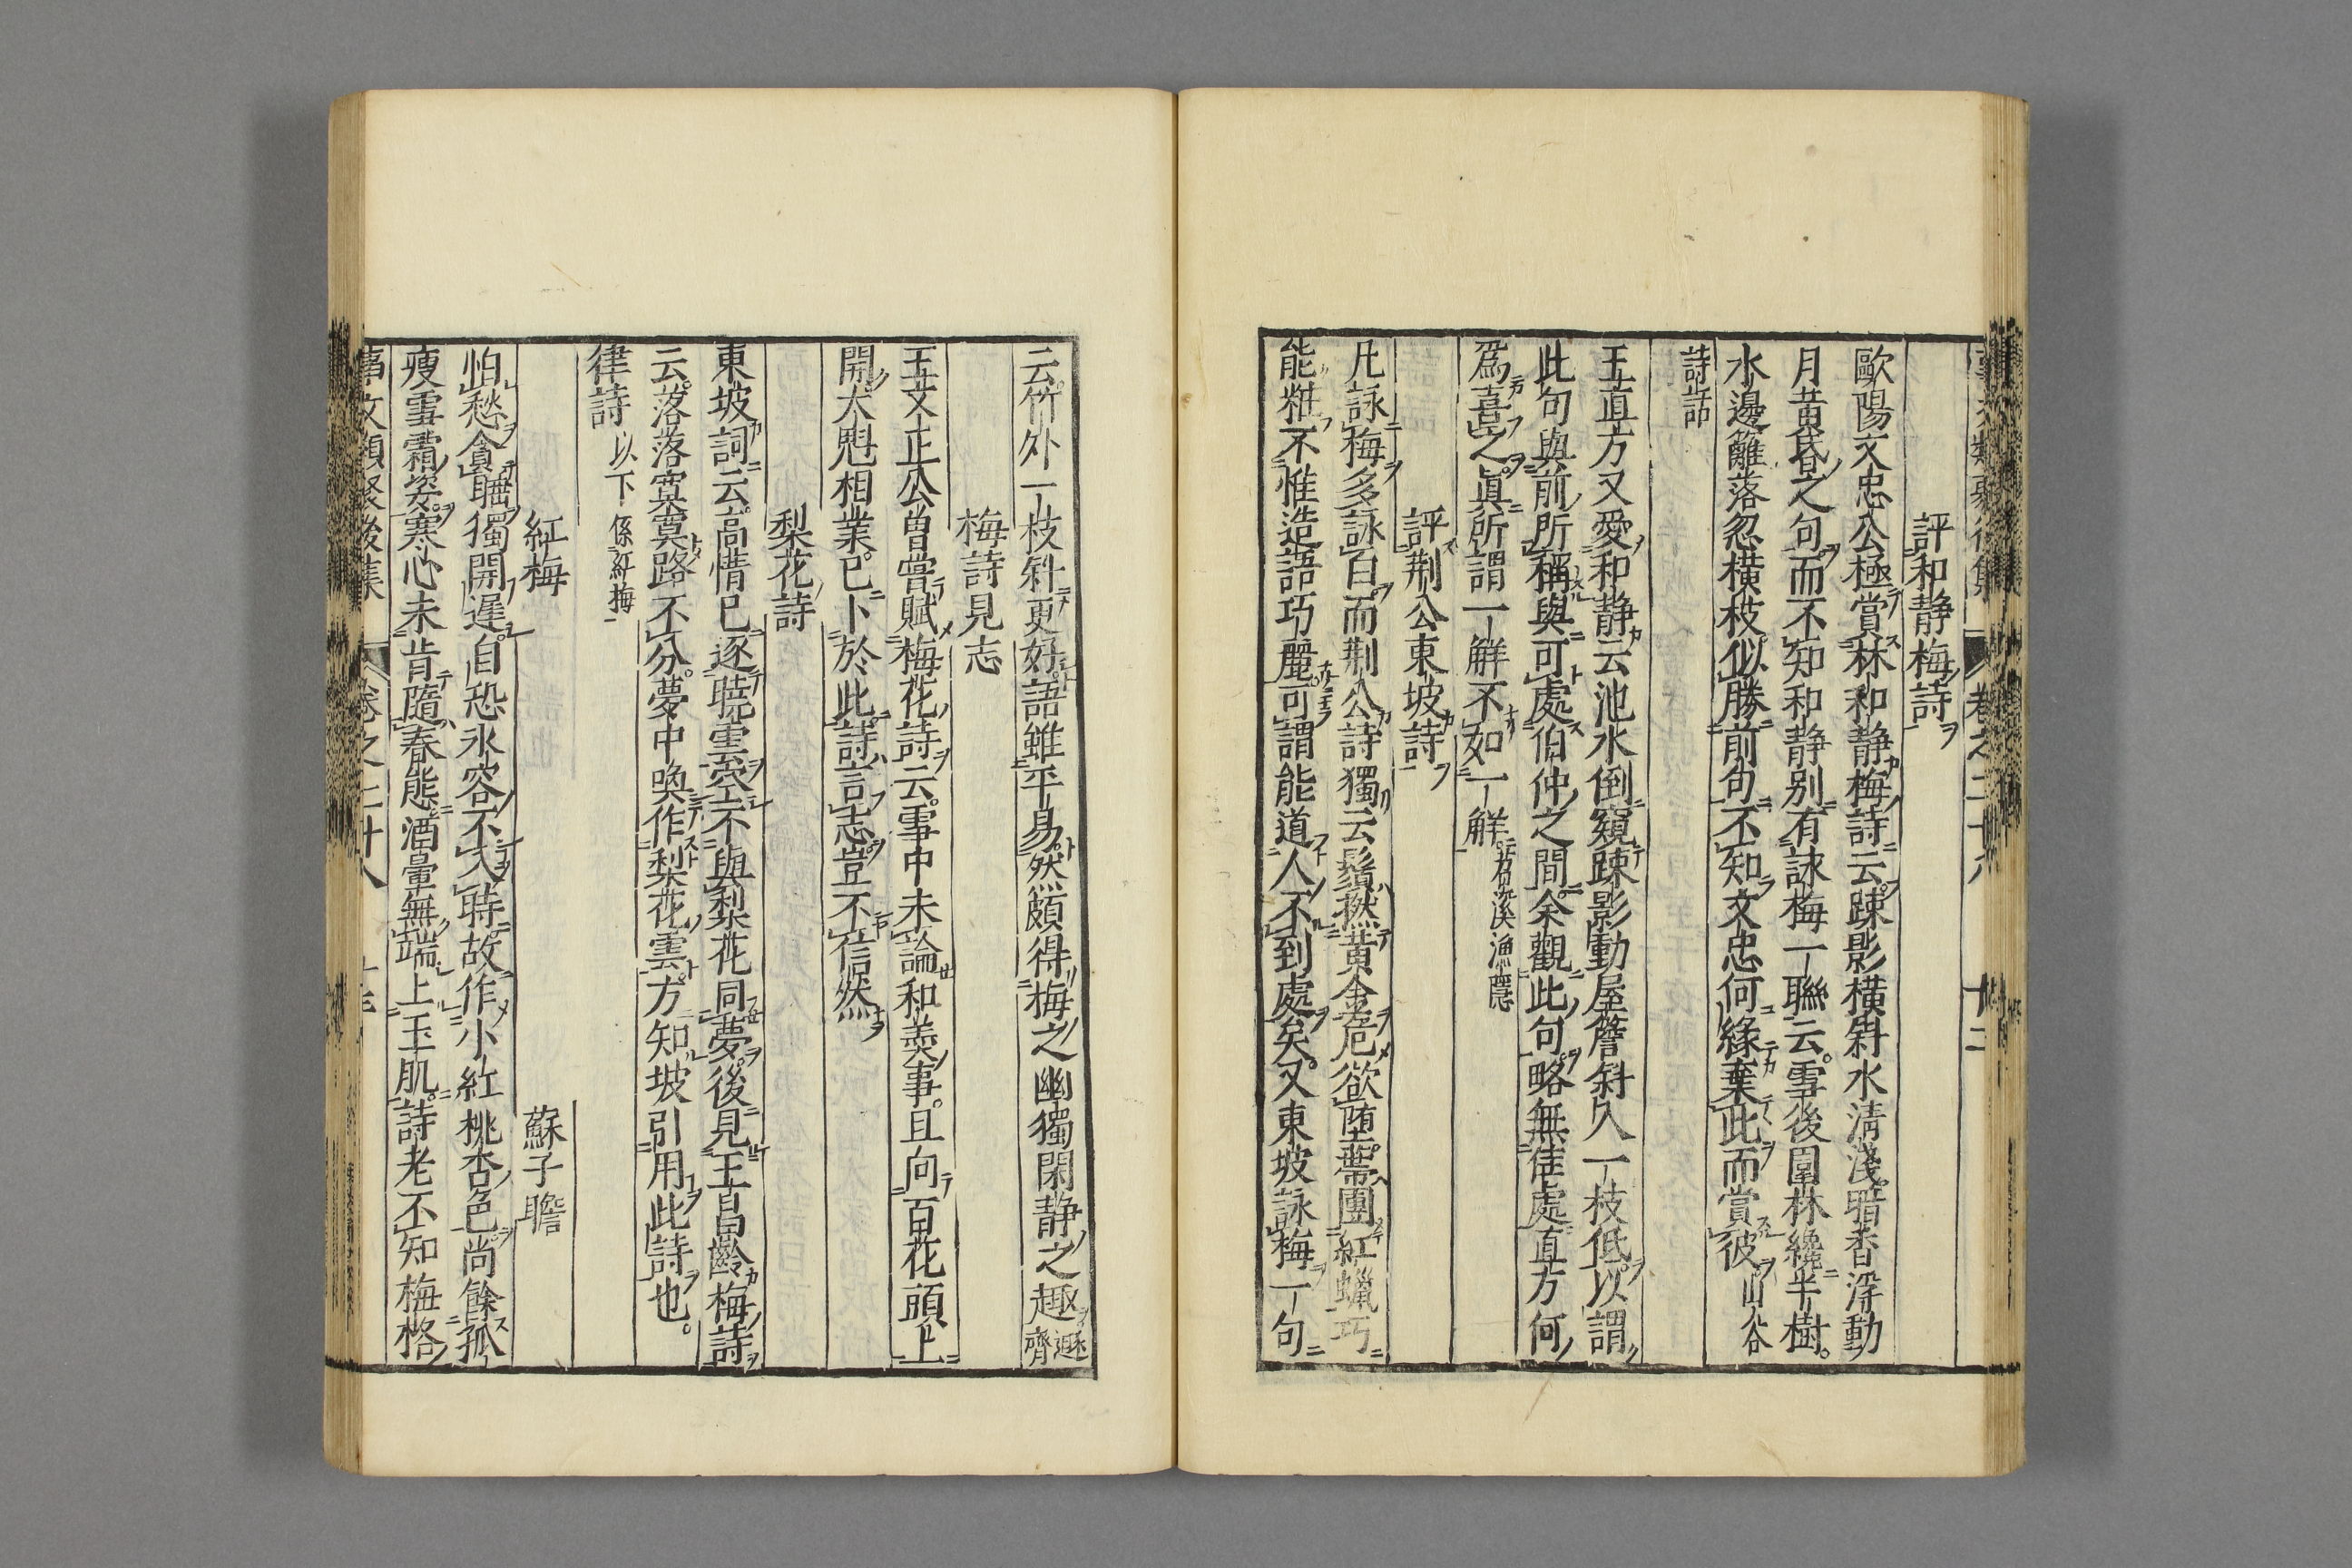 評和静梅詩
歐陽文忠公極賞林和静梅詩云踈影横斜水清淺暗香浮動
月黄昏之句而不知和静别有詠梅一聯云雪後園林纔半樹
水邊籬落忽横枝似勝前句不知文忠何緣棄此而賞彼山谷
詩話
王直方又愛和静云池水倒窺踈影動屋簷斜入一枝低以謂
此句與前所稱與可處伯仲之間余觀此句略無佳處直方何
爲喜之眞所謂一觧不如一觧苕溪漁隱
評荆公東坡詩
凡詠梅多詠白而荆公詩獨云鬚撚黄金危欲堕蔕團紅蠟巧
能粧不惟造語巧麗可謂能道人不到處矣又東坡詠梅一句
云竹外一枝斜更好語雖平易然頗得梅之幽獨閑静之趣遯齊
梅詩見志
王文正公曽嘗賦梅花詩云雪中未論和羮事且向百花頭上
開大魁相業已卜於此詩言志豈不信然
梨花詩
東坡詞云高情已逐暁雲空不與梨花同夢後見王昌齡梅詩
云落落寞寞路不分夢中喚作梨花雲方知坡引用此詩也
律詩 以下係紅梅
紅梅 蘇子瞻
怕愁貪睡獨開遲自恐氷容不入時故作小紅桃杏色尚餘孤
瘦雪霜姿寒心未肯隨春態酒暈無端上玉肌詩老不知梅格
事文類聚後集 卷之二十八